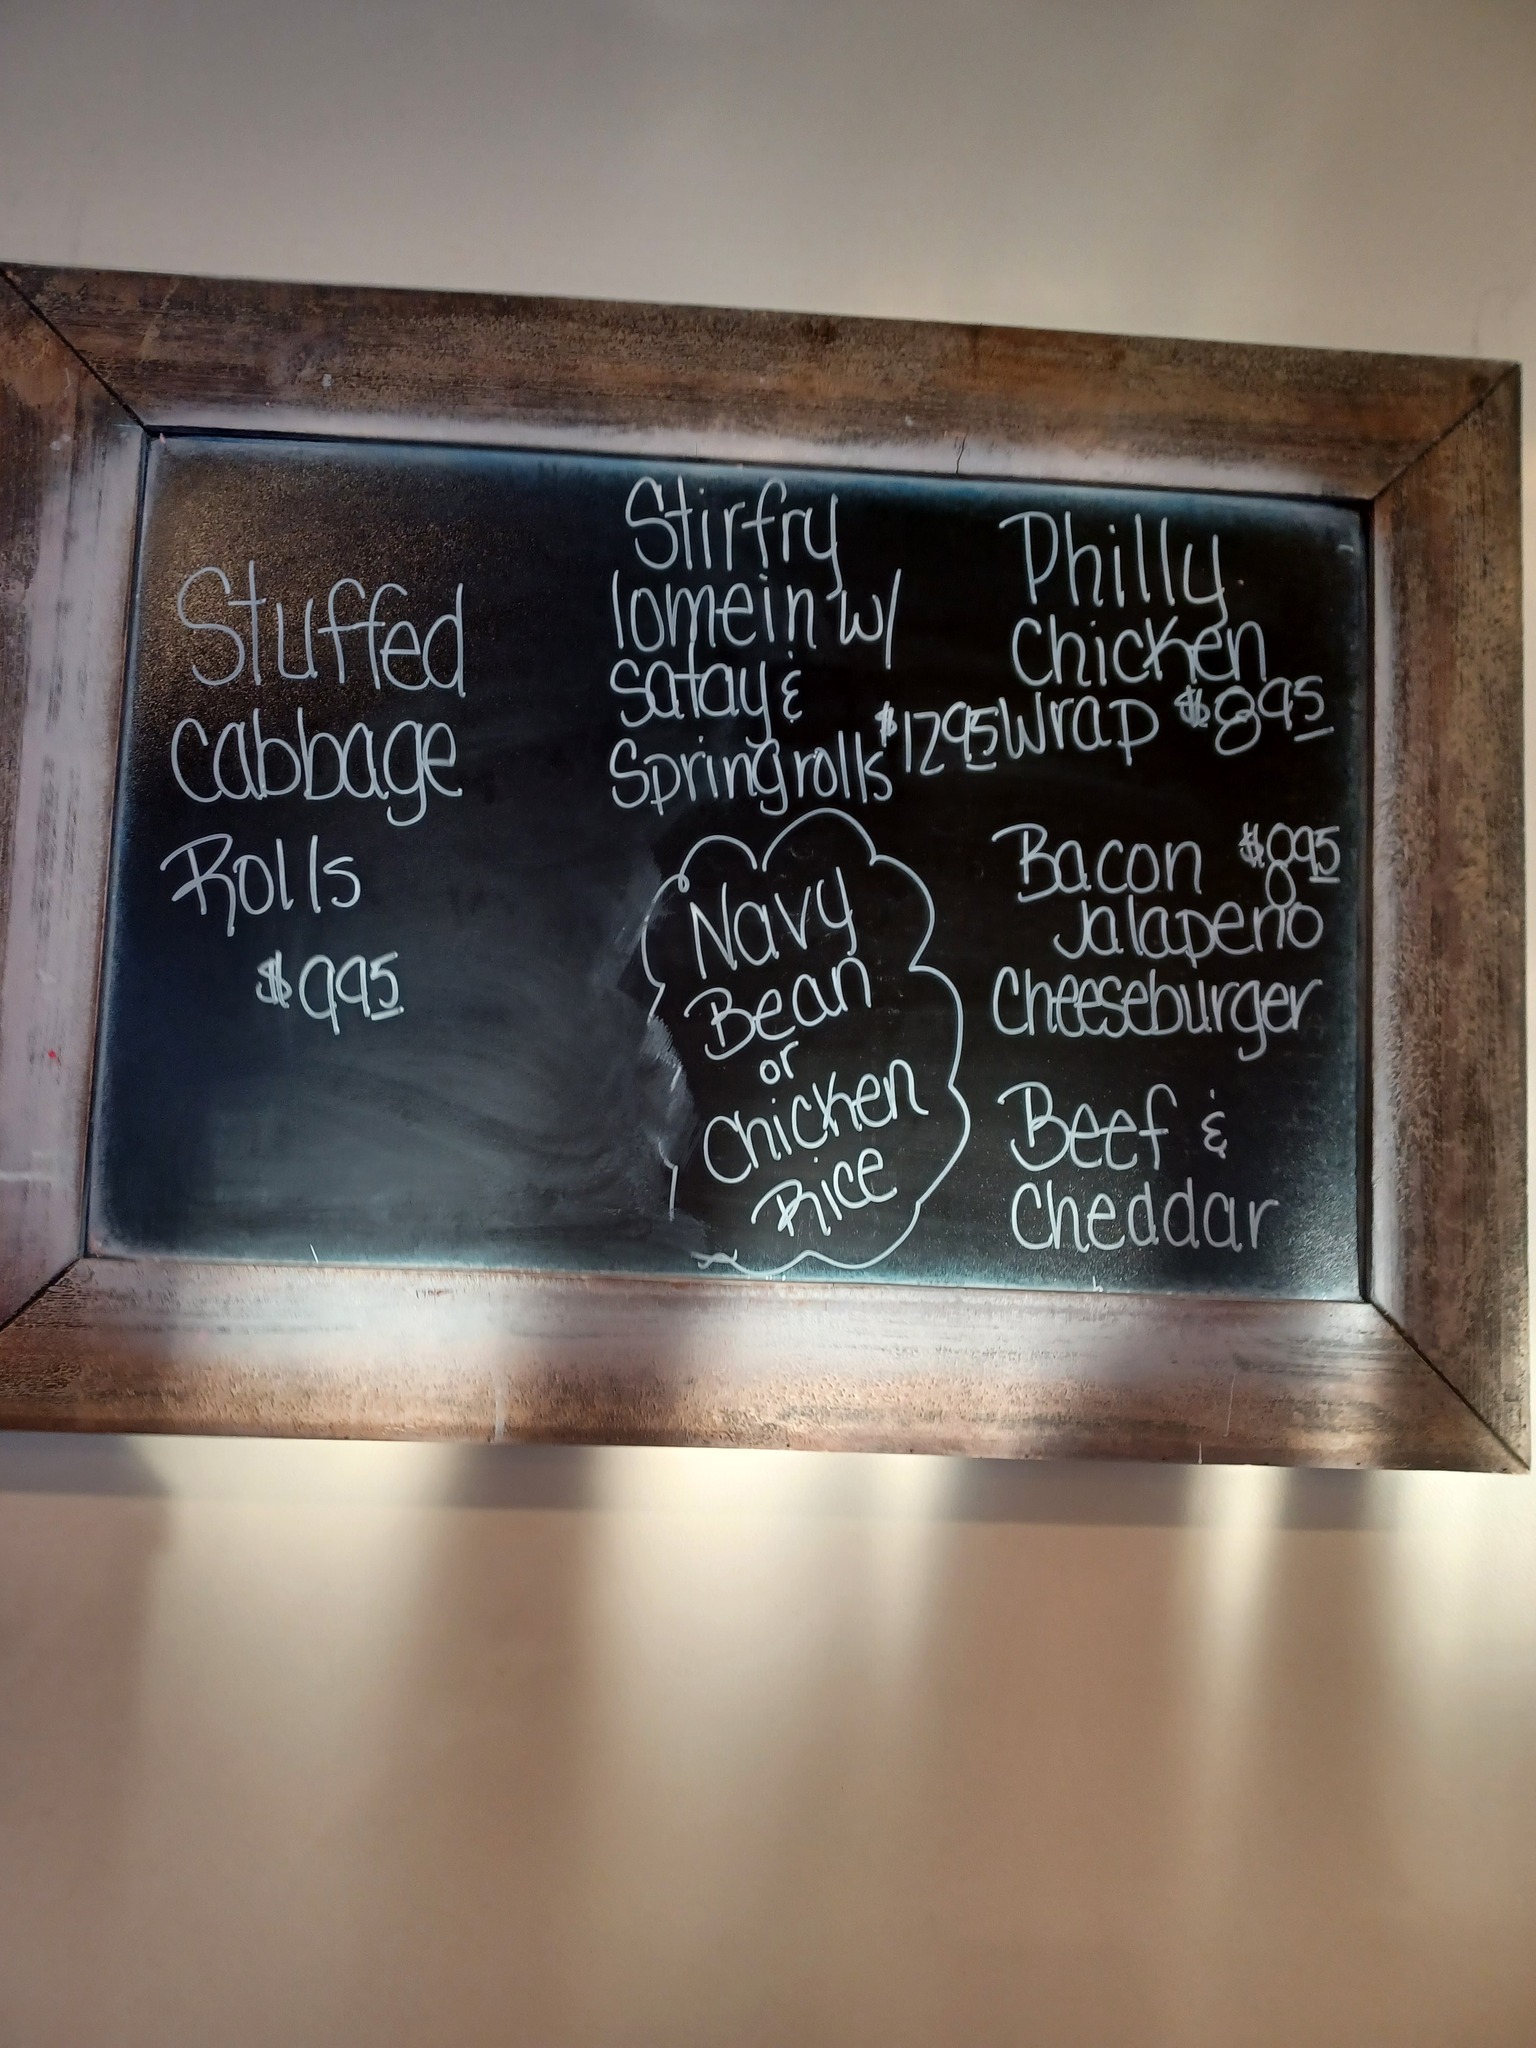 Stuffed
Cabbage
Rolls
$9.95
Stirfry
lomein w/
Satay &
Springrolls $12.95
Navy
Bean
or
Chicken
Rice
Philly
Chicken
Wrap $8.95
Bacon $8.95
Jalapeno
Cheeseburger
Beef &
Cheddar